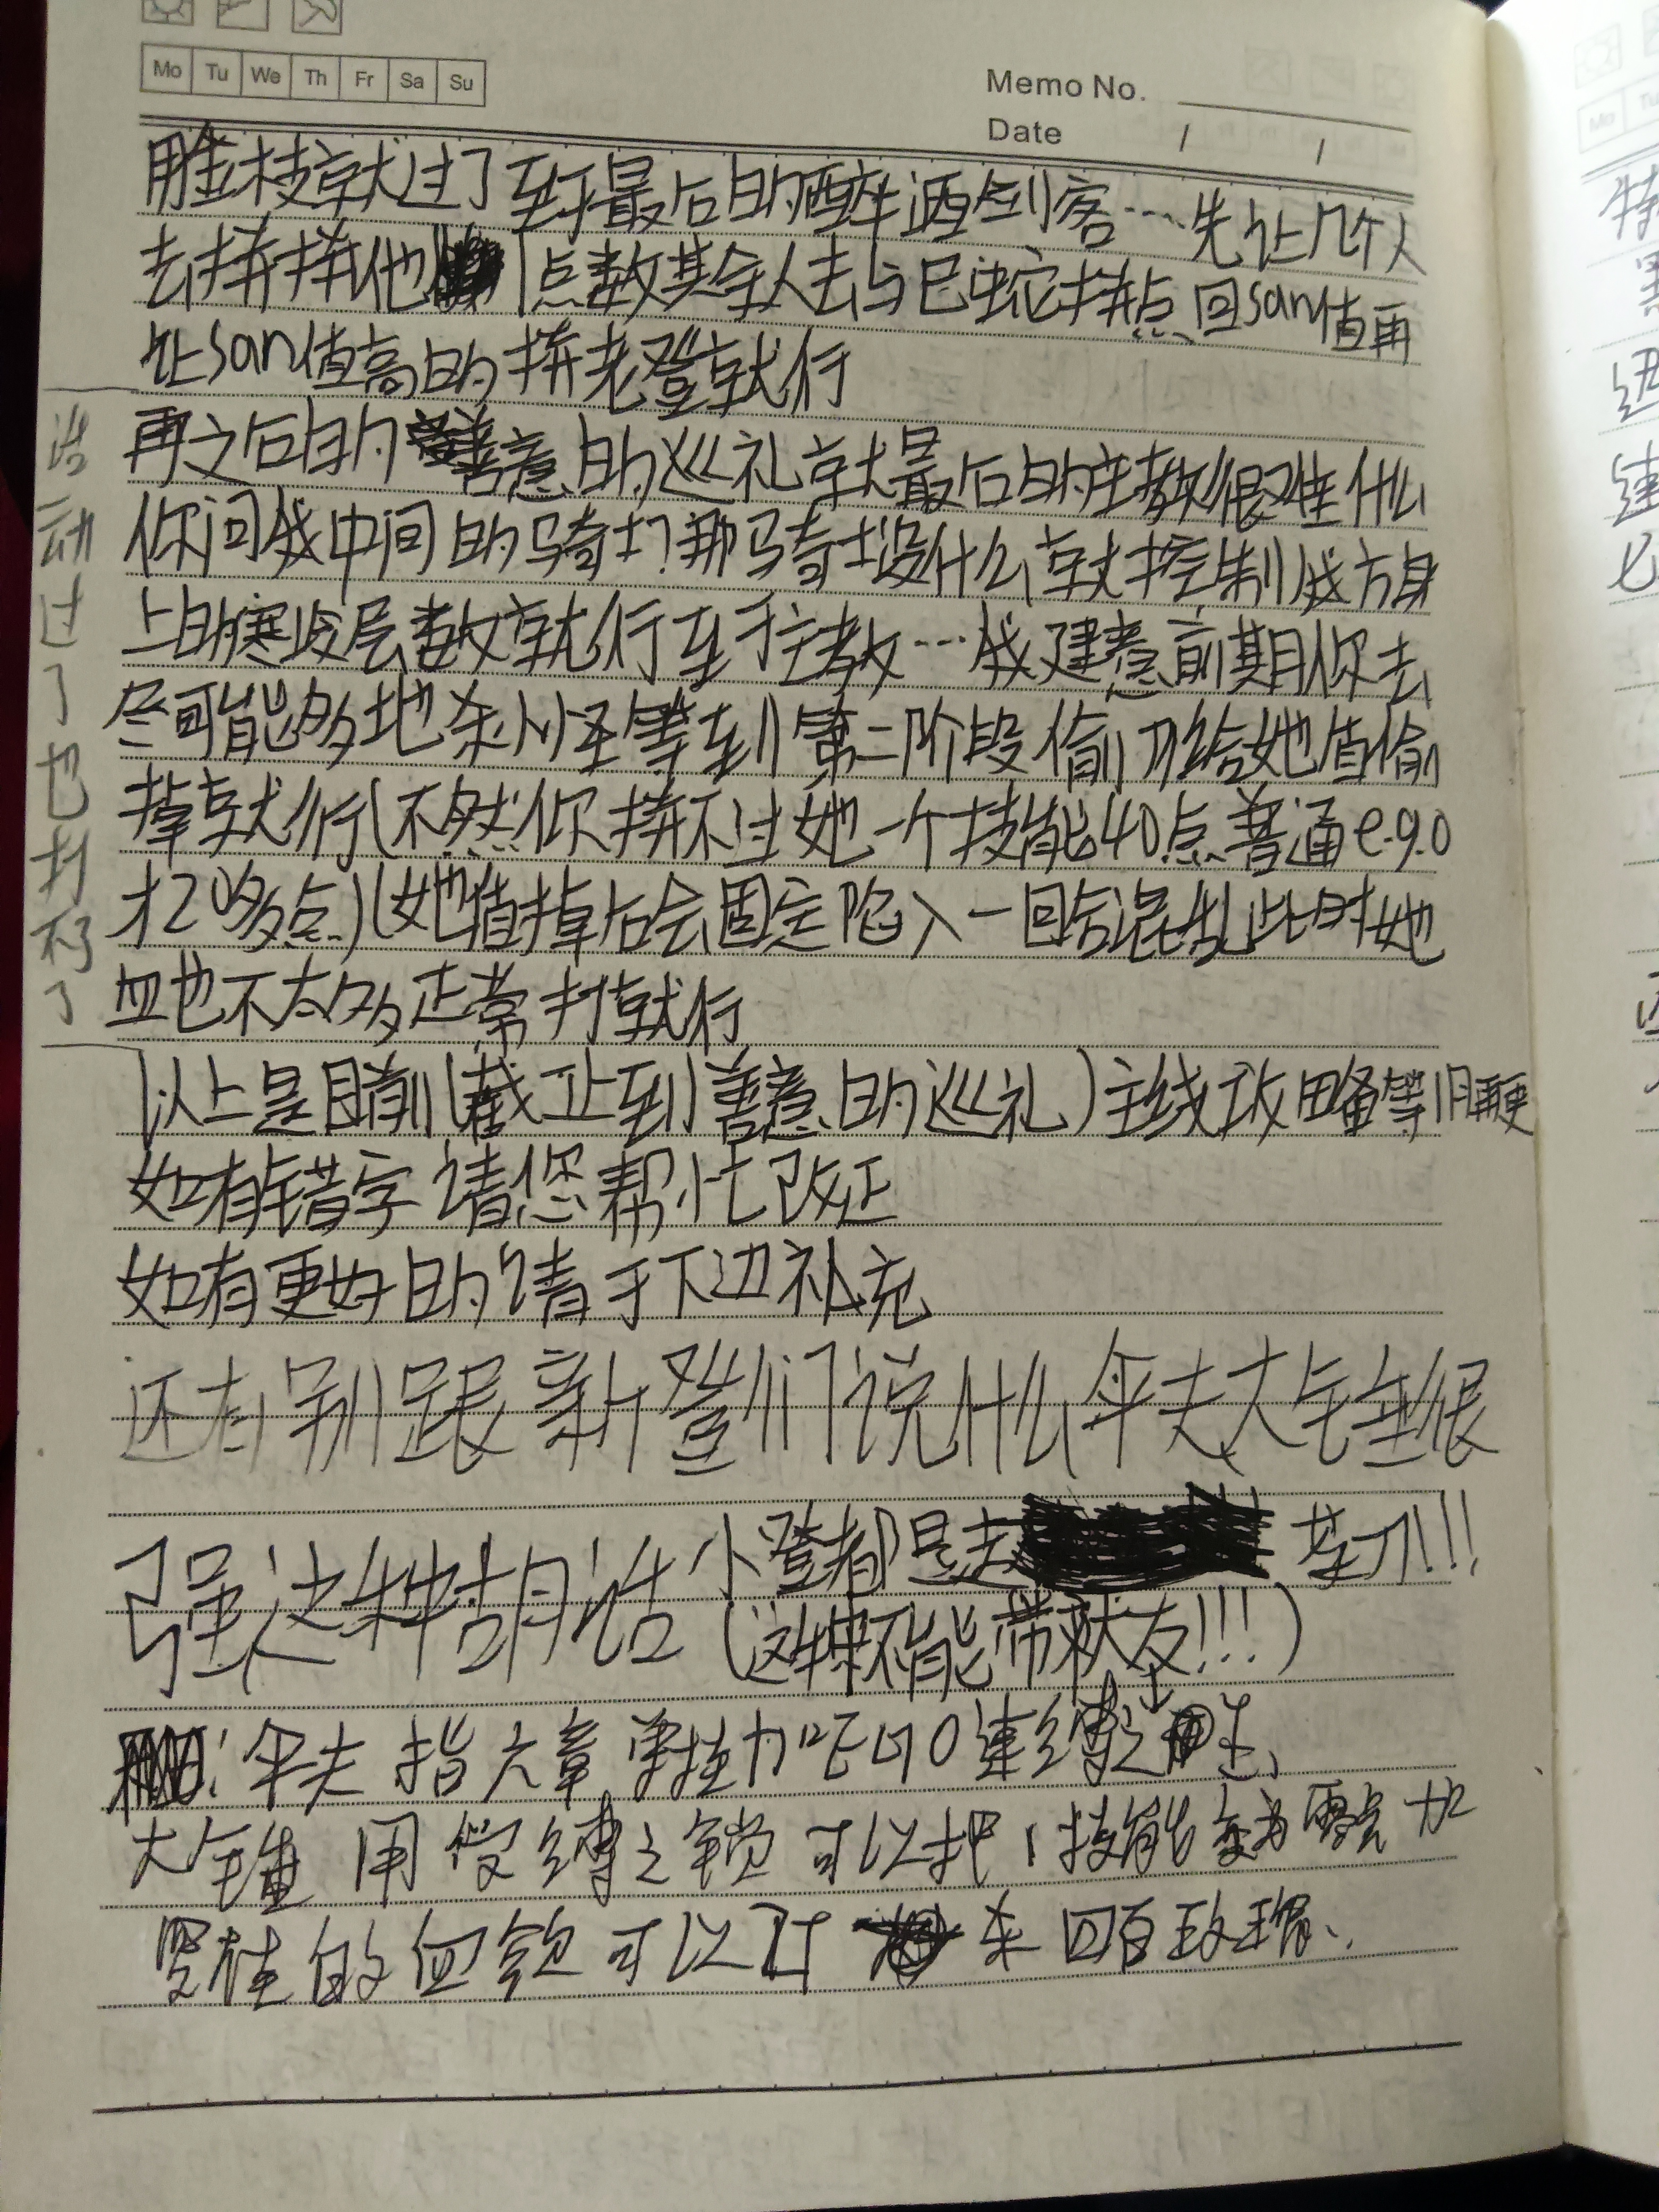 Mo Tu We Th Fr Sa Su
Memo No.
Date / /
用金枝就过了至于最后的醉酒剑客…先让几个人
去拼拼他点数其余人去与巳蛇拼点回san值再
让san值高的拼老登就行
再之后的善意的巡礼就最后的主教很难什么
你问我中间的骑士?那骑士没什么就控制我方身
上的寒级层数就行至于主教…我建意前期你去
尽可能多地杀小怪等到第二阶段偷刀给她值偷
掉就行(不然你拼不过她一个技能40点普通e.g.o
才20多点)(她值掉后会固定陷入一回合混乱此时她
血也不太多正常打就行
活动过了也打不了
(以上是目前(截止到善意的巡礼)主线攻略等旧更
如有错字请您帮忙改正
如有更好的请于下边补充
还有别跟新登们说什么伞夫大锤很
强这种胡话 小登都是去 苦力!!!
(这样不能带秋友!!!)
:伞夫 指六章 掌控力 ego 束缚之
大锤 用 缚之锁 可以把1技能变为零点 加
的 血 可以 杀 四百玫瑰.